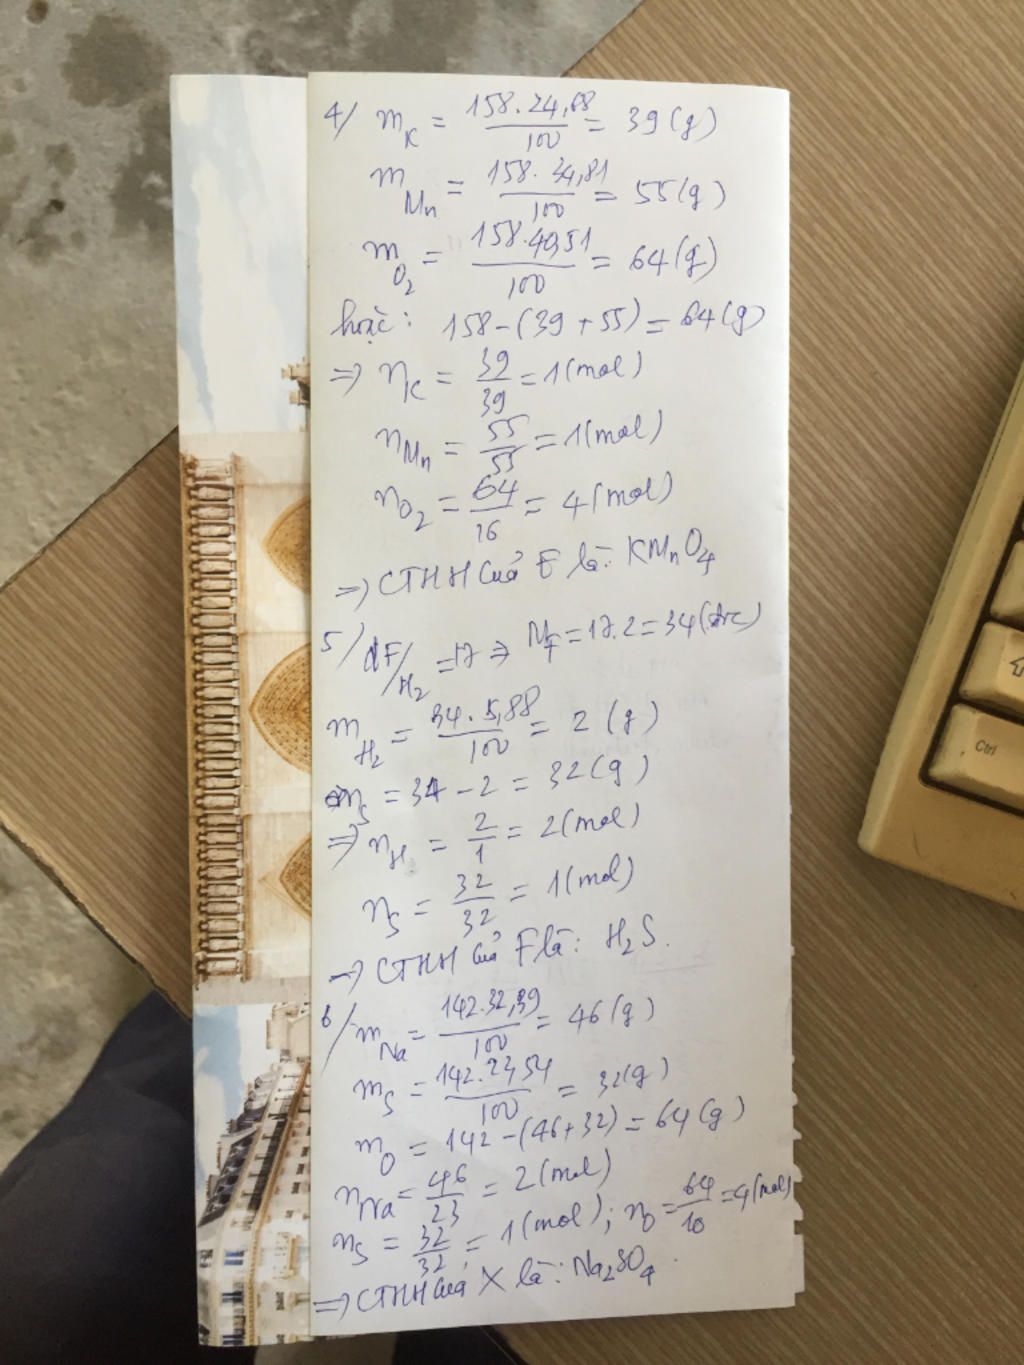 4/ m_K = 158.24,68/100 = 39(g)
m_Mn = 158.34,81/100 = 55(g)
m_O2 = 158.40,51/100 = 64(g)
hoặc: 158-(39+55) = 64(g)
=> n_K = 39/39 = 1(mol)
n_Mn = 55/55 = 1(mol)
n_O2 = 64/16 = 4(mol)
=> CTHH của E là: KMnO4
5/ dF/H2 = 17 => M_F = 17.2 = 34(đvc)
m_H2 = 34.5,88/100 = 2 (g)
m_S = 34 - 2 = 32(g)
=> n_H = 2/1 = 2(mol)
n_S = 32/32 = 1(mol)
=> CTHH của F là: H2S.
6/ m_Na = 142.32,39/100 = 46(g)
m_S = 142.22,54/100 = 32(g)
m_O = 142-(46+32) = 64(g)
n_Na = 46/23 = 2(mol)
n_S = 32/32 = 1(mol); n_O = 64/16 = 4(mol)
=> CTHH của X là: Na2SO4.
Ctrl